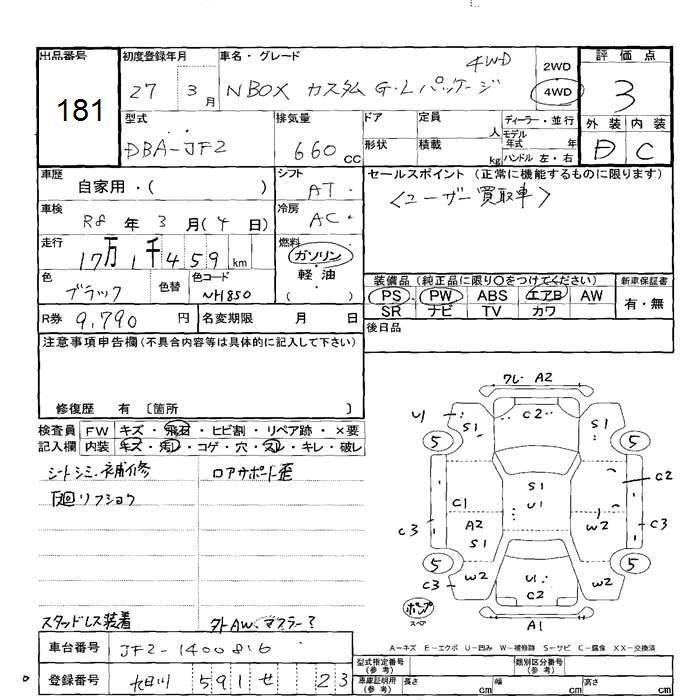 出品番号
181
初度登録年月
27 3月
車名・グレード
NBOX カスタム G・Lパッケージ 4WD
2WD
4WD
評価点
3
外装 内装
D C
型式
DBA-JF2
排気量
660 CC
ドア
形状
定員 人
積載 kg
ディーラー・並行
モデル年式 年
ハンドル 左・右
車歴
自家用・( )
シフト
AT
車検
R8年3月(4日)
冷房
AC
走行
17万1千459km
燃料
ガソリン
軽油
( )
色
ブラック
色替
色コード
NH850
R券 9,790円
名変期限 月 日
セールスポイント (正常に機能するものに限ります)
<ユーザー買取車>
装備品 (純正品に限り○をつけてください)
PS PW ABS エアB AW
SR ナビ TV カワ
新車保証書
有・無
後日品
注意事項申告欄 (不具合内容等は具体的に記入して下さい)
修復歴 有 〔箇所
検査員記入欄
FW キズ・飛石・ヒビ割・リペア跡・×要
内装 キズ・汚レ・コゲ・穴・スレ・キレ・破レ
シートシミ・補修
ロアサポート歪
下廻リフショク
スタッドレス装着
外AW、マフラー?
車台番号 JF2-1400816
登録番号 591 せ 23
ワレ A2
C2
U1
S1
S1
5
5
S1
U1
C1
A2
S1
C3
C2
C3
W2
5
5
C3
W2
U1
C2
W2
ポンプ
スペ
A1
A－キズ E－エクボ U－凹み W－補修跡 S－サビ C－腐食 XX－交換済
型式指定番号(参考)
類別区分番号(参考)
車庫証明用(参考) 長さ cm 幅 cm 高さ cm